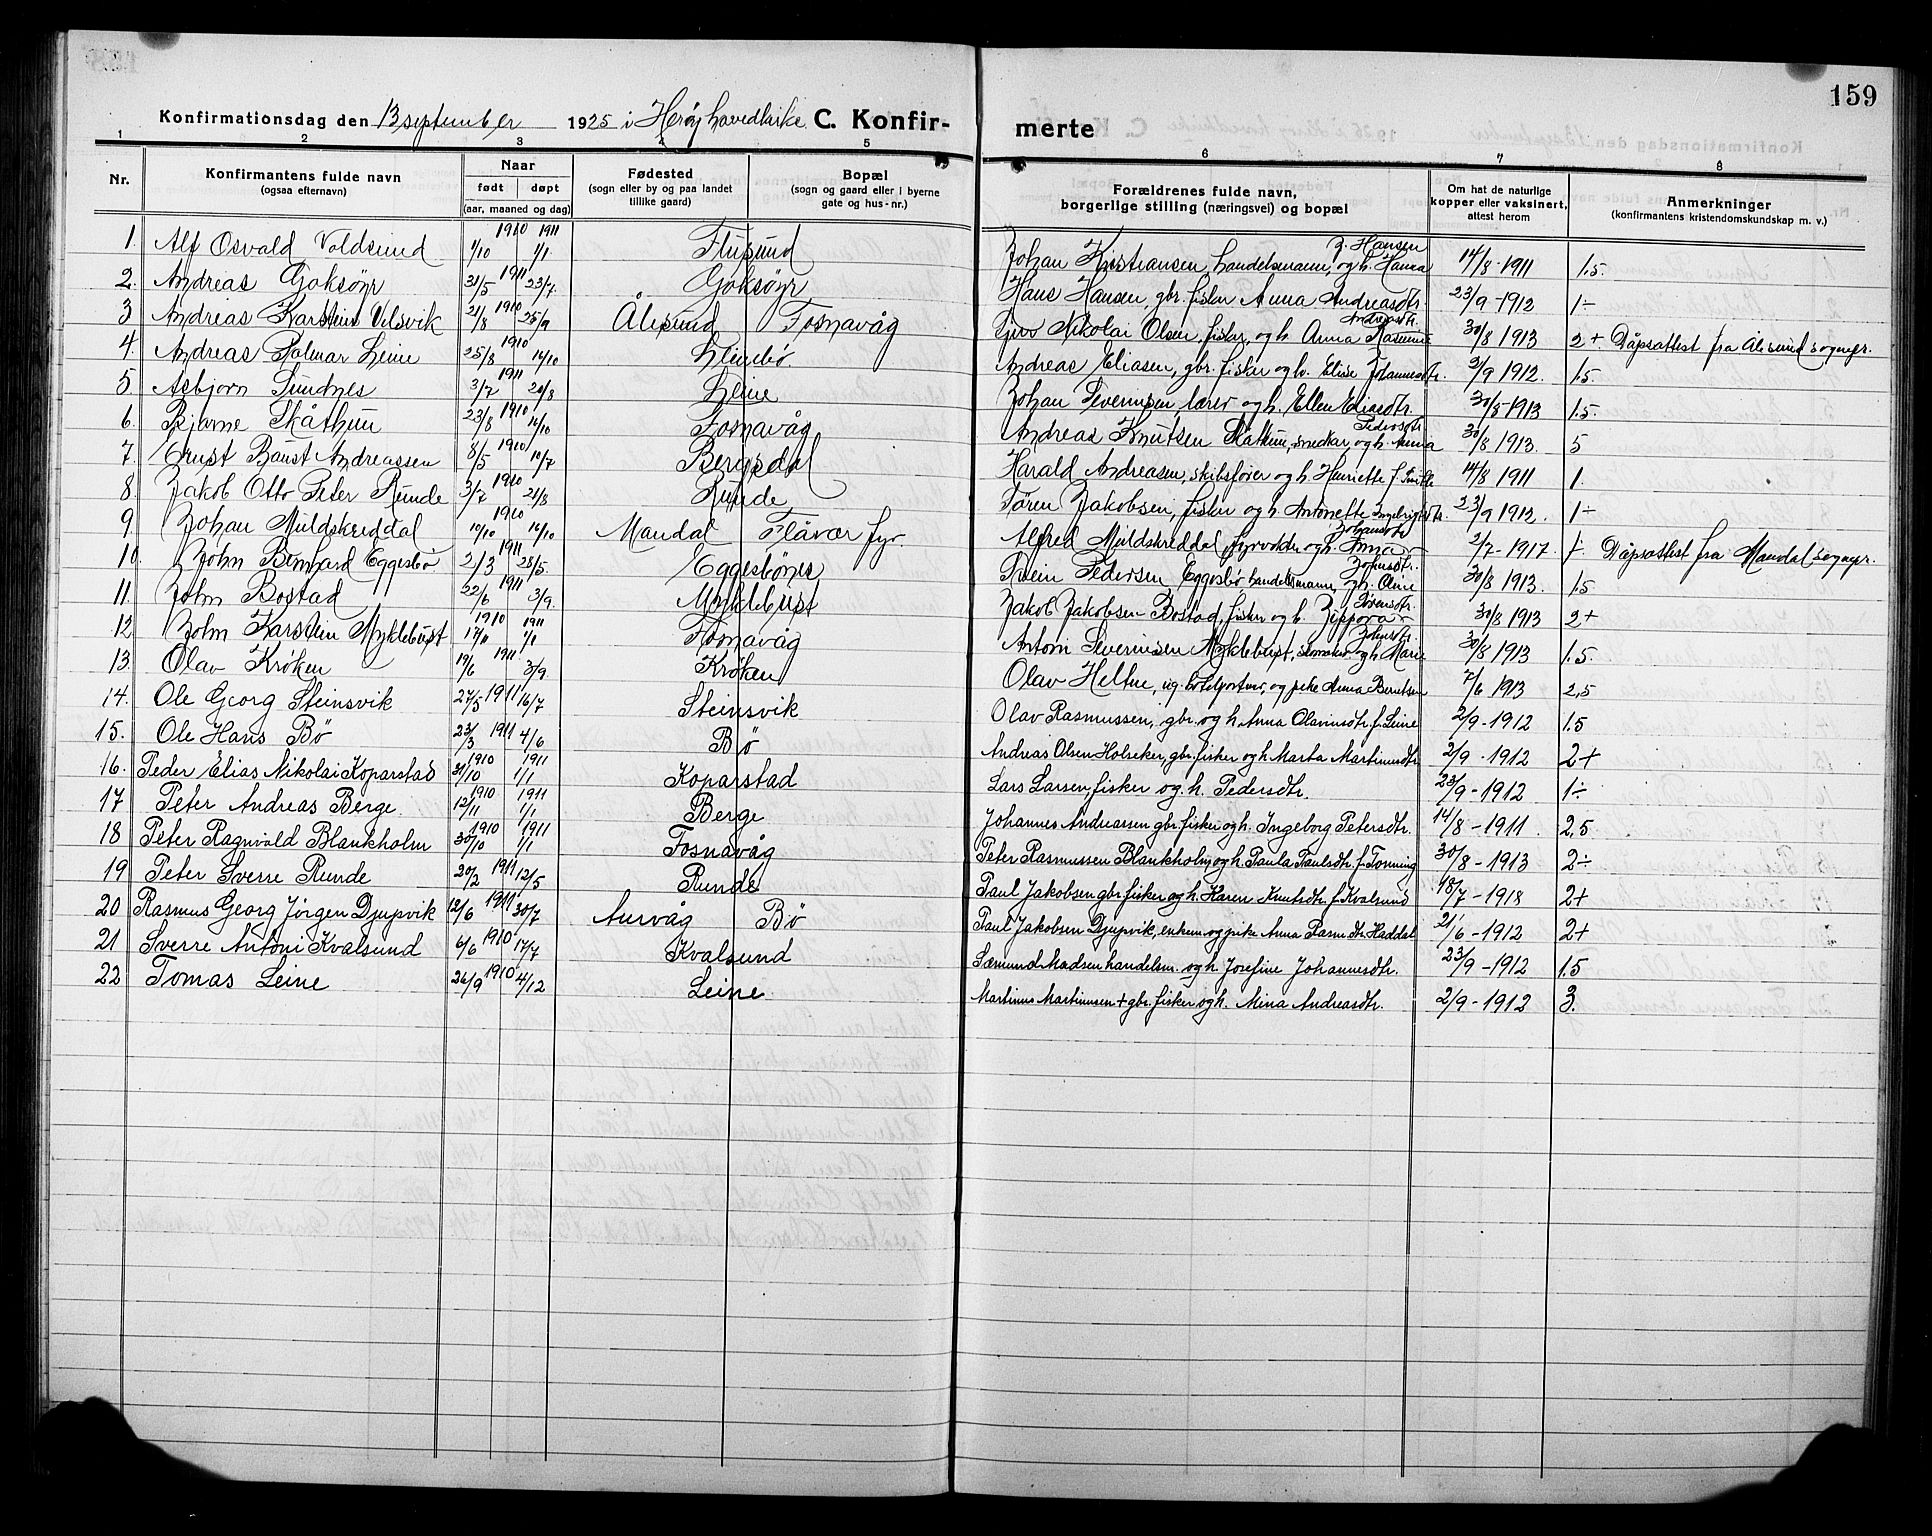 159
Konfirmationsdag den 13 september 1925 i Herøy hovedkirke. C. Konfir- merte
1 2 3 4 5 6 7 8
Nr. Konfirmantens fulde navn (ogsaa efternavn) Naar født døpt (aar, maaned og dag) Fødested (sogn eller by og paa landet tillike gaard) Bopæl (sogn og gaard eller i byerne gate og hus-nr.) Forældrenes fulde navn, borgerlige stilling (næringsvei) og bopæl Om hat de naturlige kopper eller vaksinert, attest herom Anmerkninger (konfirmantens kristendomskundskap m. v.)
1. Alf Osvald Voldsund 1/10 1910 1/1 1911 Flusund Johan Kristiansen, handelsmann, og h. Hanna J. Hansen 14/8 1911 1.5.
2. Andreas Goksøyr 31/5 1911 23/7 Goksøyr Hans Hansen, gbr. fisker Anna Andreasdtr. 23/9 - 1912 1÷
3 Andreas Karstein Velsvik 21/8 1910 25/9 Ålesund Fosnavåg Nikolai Olsen, fisker, og h. Anna Andreasdtr. 30/8 1913 2+. Dåpsattest fra Ålesund sognepr.
4. Andreas Hjalmar Leine 25/8 1910 16/10 Leinebø. Andreas Eliasen, gbr. fisker og h. Elise Johannesdtr. 3/9 1912. 1.5
5 Asbjørn Sundnes 3/7 1911 20/8 Leine Johan Severinsen, lærer og h. Ellen Eliasdtr. 30/8-1913 1.5.
6 Bjarne Skåthun 23/8 1910 16/10 Fosnavåg Andreas Knutsen Skåthun, snedker, og h. Anna Pedersdtr. 30/8 1913. 5
7 Ernst Baust Andreassen 8/5 1910 10/7 Bergsdal Harald Andreasen, skibsfører og h. Henriette f. 14/8 1911 1.
8 Jakob Otto Peter Runde 3/7 1910 21/8 Runde Søren Jakobsen, fisker og h. Antonette Ingebrigtsdtr. 23/9 1912. 1÷
9 Johan Muldskreddal 10/10 1910 16/10 Mandal Flåvær fyr. Alfred Muldskreddal, fyrvokter og h. Anna 2/7 - 1917. 1. Dåpsattest fra Mandal sognepr.
10. John Bernhard Eggesbø 2/3 1911 28/5. Eggesbønes Svein Pedersen Eggesbø handelsmann, og h. Oline Johnsdtr. 30/8 1913. 1.5
11. John Bostad 22/6 1911 3/9. Myklebust Jakob Jakobsen Bostad, fisker og h. Zippora Sørensdtr. 30/8 1913 2+
12 John Karstein Myklebust 17/11 1910 1/1 1911 Fosnavåg Antoni Severinsen Myklebust, og h. Marie Johnsdtr. 30/8 1913 1.5.
13. Olav Krøken 19/6 1911 3/9. Krøken Olav Heltne, ug. hotelportner, og pike Anna Berntsen 7/6 1913 2,5
14. Ole Georg Steinsvik 27/5 1911 16/7 Steinsvik Olav Rasmussen, gbr. og h. Anna Olavinsdtr. f. Leine 2/9 - 1912 1.5
15. Ole Hans Bø 23/3 1911 4/6 Bø Andreas Olsen Holseker, gbr. fisker og h. Marta Martinusdtr. 2/9 . 1912 2+
16. Peder Elias Nikolai Koparstad 31/10 1910 1/1 1911 Koparstad Lars Larsen, fisker og h. Pedersdtr. 23/9 - 1912 1÷
17 Peter Andreas Berge 12/11 1910 1/1 1911 Berge Johannes Andreassen gbr. fisker og h. Ingeborg Petersdtr. 14/8 - 1911 2,5
18 Peter Ragnvald Blankholm 30/10 1910 1/1 1911 Fosnavåg Peter Rasmussen Blankholm og h. Paula Paulsdtr. f. 30/8 - 1913 2÷
19 Peter Sverre Runde 20/2 1911 12/5 Runde Paul Jakobsen gbr. fisker og h. Karen Knutsdtr. f. Kvalsund 18/7 - 1918 2+
20 Rasmus Georg Jørgen Djupvik 12/6 1911 30/7 Aurvåg Bø Paul Jakobsen Djupvik, enkem. og pike Anna Rasm.dtr. Haddal 21/6 - 1912 2+
21 Sverre Antoni Kvalsund 6/6 1910 17/7 Kvalsund Sæmund Madsen handelsm. og h. Josefine Johannesdtr. 23/9 - 1912 1.5
22 Tomas Leine 26/9 1910 4/12 Leine. Martinus Martinussen + gbr. fisker og h. Mina Andreasdtr. 2/9 - 1912 3.